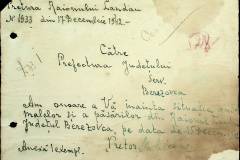 Pretura Raionului Landau
No 1933 din 17 Decembrie 1942.-
Către
Prefectura Județului
Serv.
Berezovca
Am onoare a Vă înainta situația
malelor și a păsărilor din Raionul
Județul Berezovca, pe data de 15 Decem
Anexă 1 exempl.
Pretor